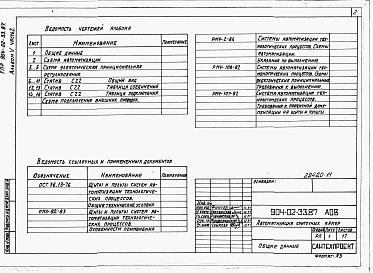 2
ТПР 904-02-33.87
Альбом V часть 2
Ведомость чертежей альбома
Лист Наименование Примечание
1 Общие данные
2 Схема автоматизации
Схема электрическая принципиальная
регулирования
Статив С22 Общий вид
12, 13 Статив С22 Таблица соединений
Статив С22 Таблица подключения
Схема подключения внешних проводок
Системы автоматизации тех-
нологических процессов. Схемы
автоматизации.
Указания по выполнению.
Системы автоматизации тех-
нологических процессов. Схемы
электрические принципиальные
Требования к выполнению.
Системы автоматизации техно-
логических процессов.
Требования к проектной доку-
ментации на щиты и пульты
Ведомость ссылочных и применённых документов
Обозначение Наименование Примечание
ОСТ 36.13-76 Щиты и пульты систем ав-
томатизации технологиче-
ских процессов.
Общие технические условия
РМ4-82-83 Щиты и пульты систем ав-
томатизации технологиче-
ских процессов.
Особенности применения
22420-11
Привязан:
904-02-33.87 АОВ
Автоматизация приточных камер
Стадия Лист Листов
РП 1 17
Общие данные
САНТЕХПРОЕКТ
Формат А3